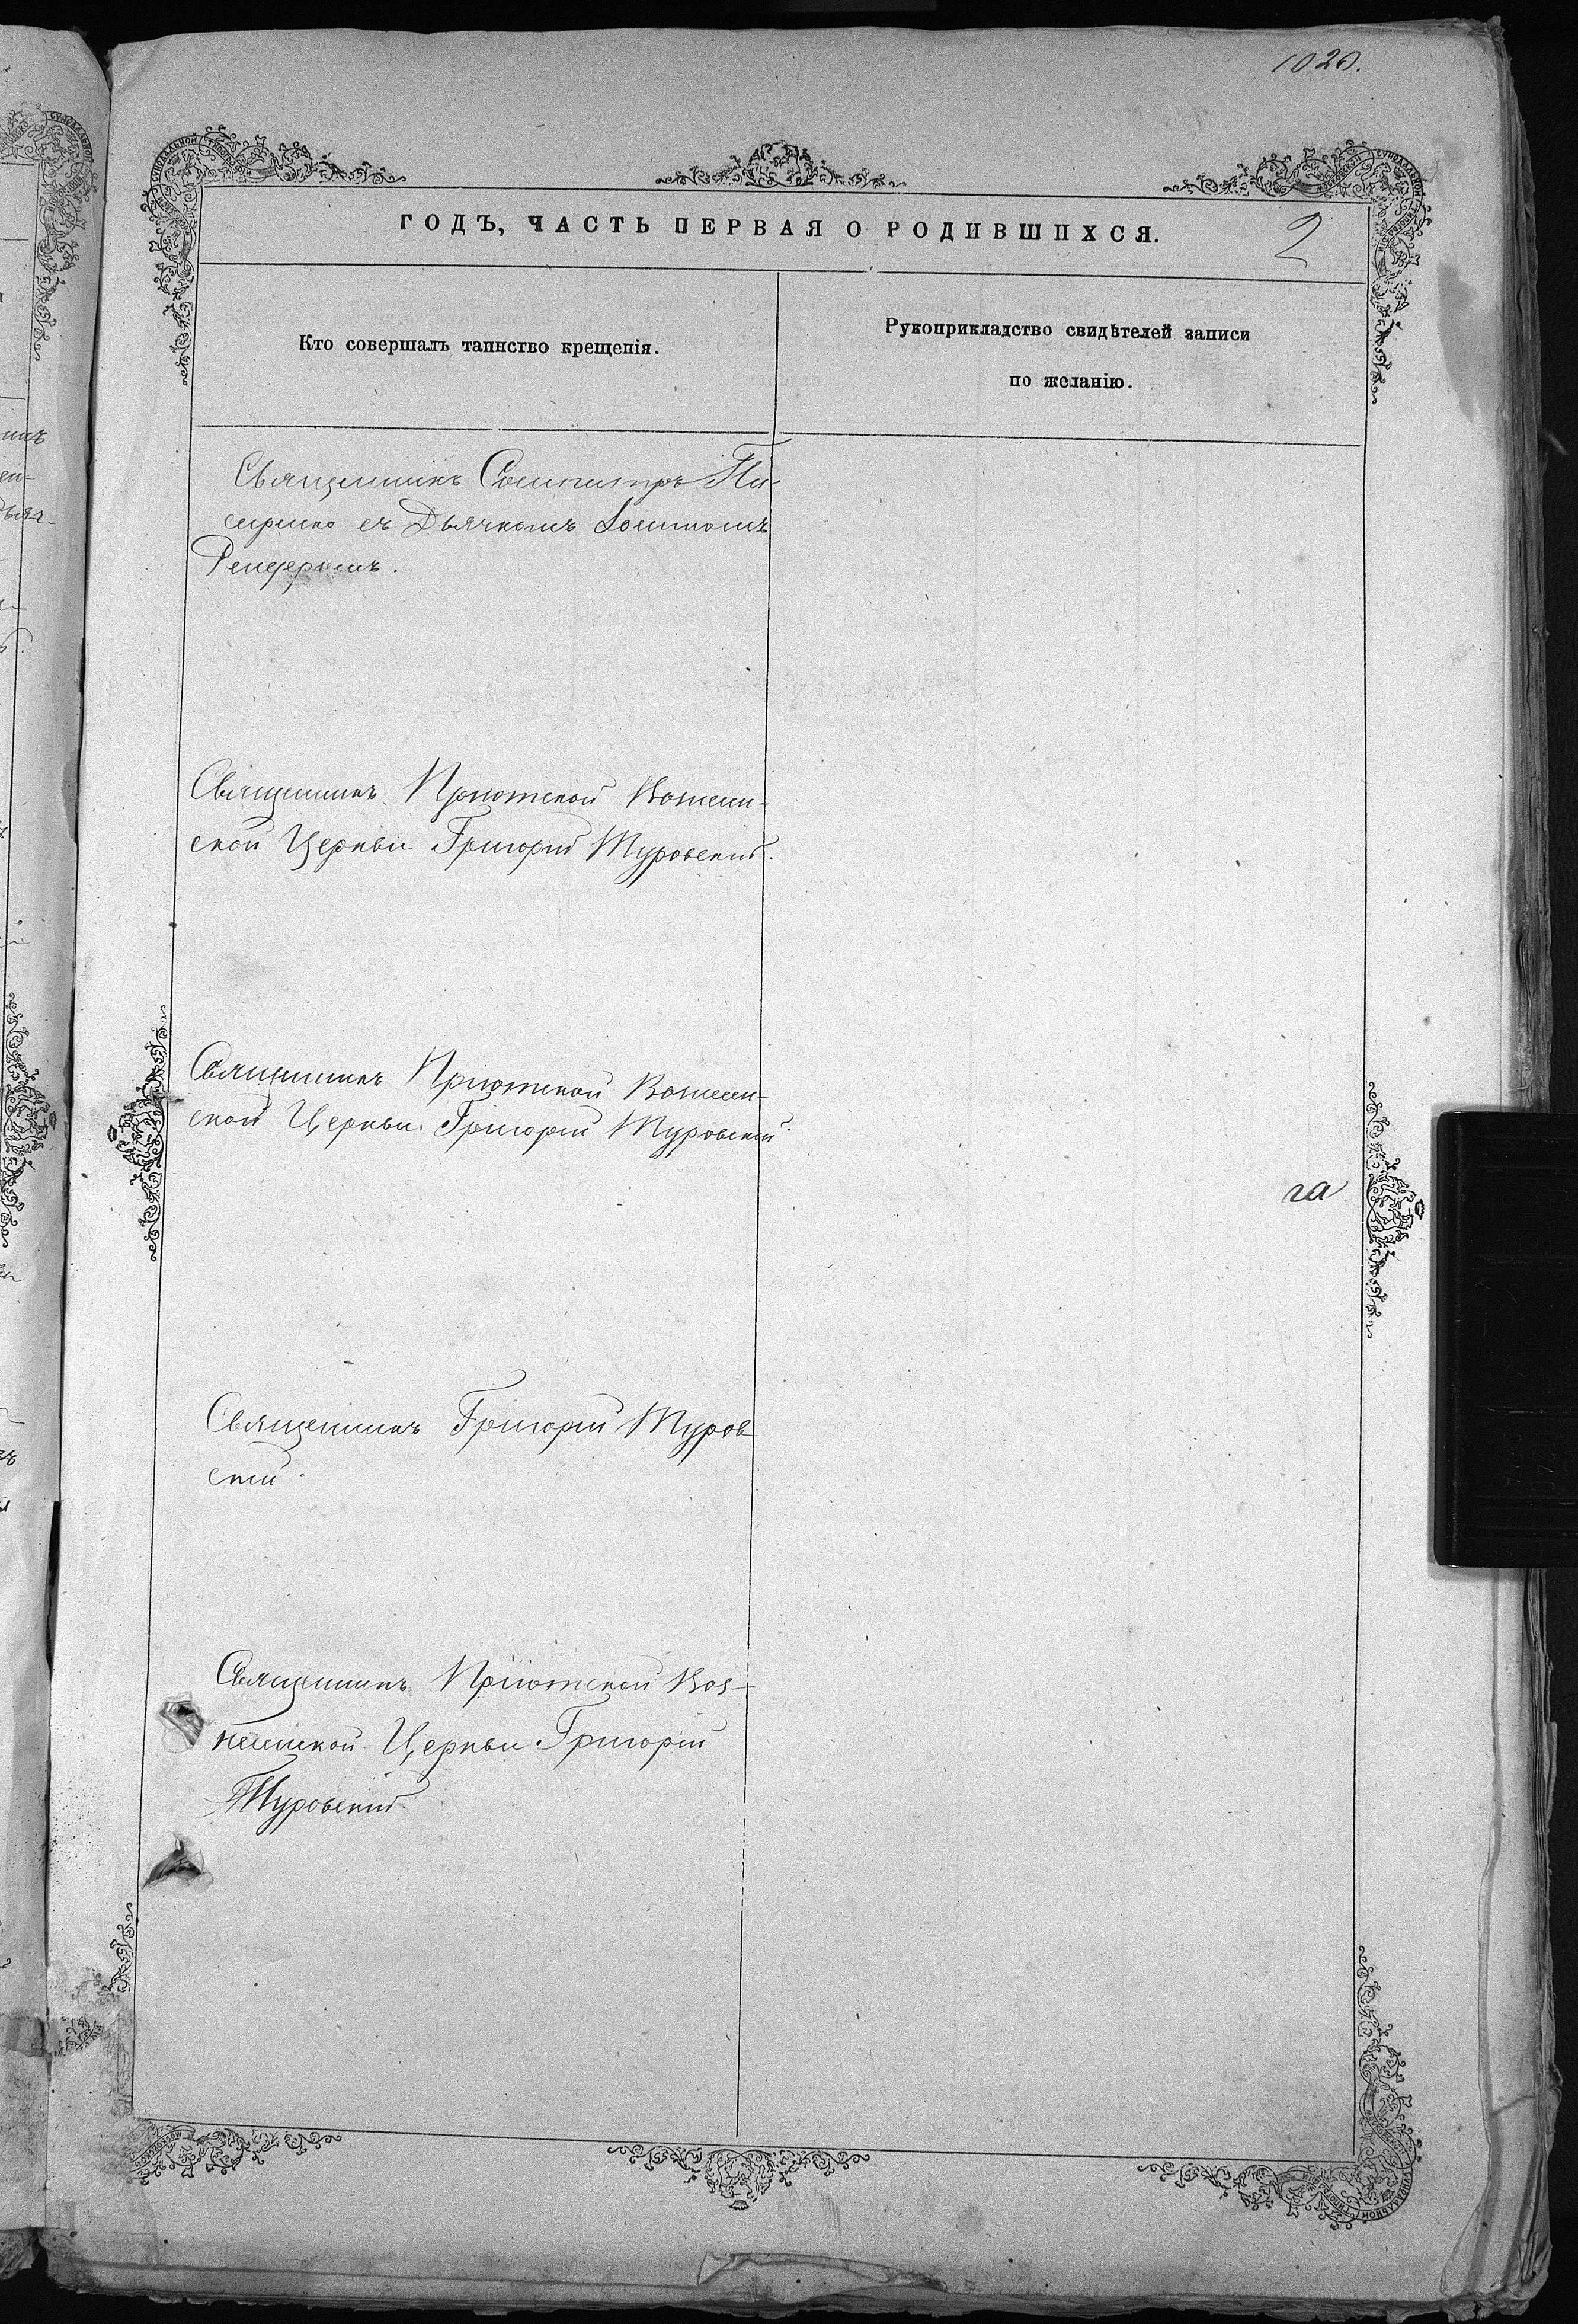 1020.
ГОДЪ, ЧАСТЬ ПЕРВАЯ О РОДИВШИХСЯ.
2
Кто совершалъ таинство крещенія.
Рукоприкладство свидѣтелей записи
по желанію.
Священникъ
съ Дьячкомъ
Священникъ Пріютской Вознесен-
ской Церкви Григорій Туровскій.
Священникъ Пріютской Вознесен-
ской Церкви Григорій Туровскій.
га
Священникъ Григорій Туров
скій.
Священникъ Пріютской Воз-
несенской Церкви Григорій
Туровскій.